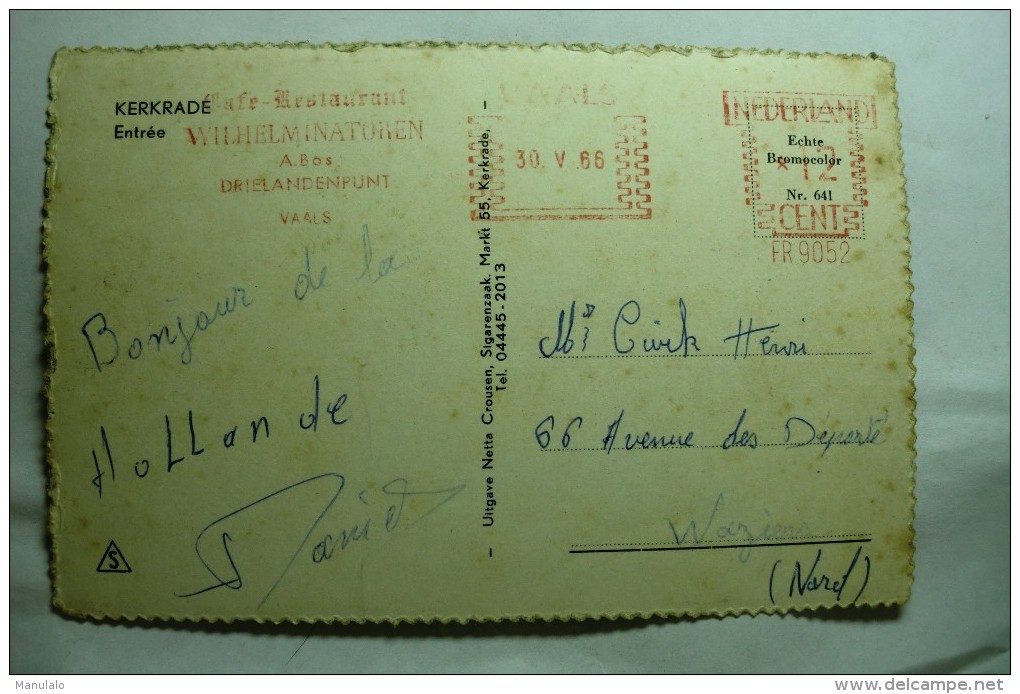 KERKRADE
Entrée
Cafe-Restaurant
WILHELMINATOREN
A. Bos
DRIELANDENPUNT
VAALS
VAALS
30. V .66
NEDERLAND
* 12
CENT
FR 9052
Echte
Bromocolor
Nr. 641
Bonjour de la
HoLLande
S
- Uitgave Netta Crousen, Sigarenzaak. Markt 55, Kerkrade, -
Tel. 04445-2013
Henri
66 Avenue des Déporté
Waziers
(Nord)
Manulalo
www.delcampe.net